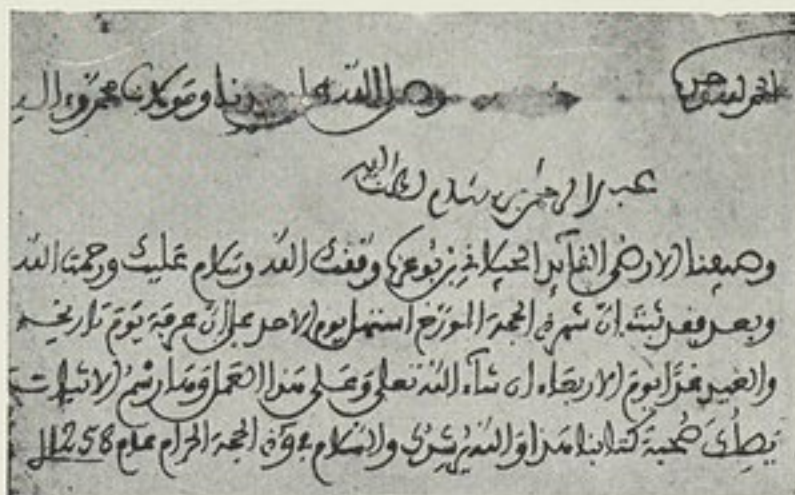 الحمد لله وحده وصلى الله على سيدنا ومولانا محمد وءاله
عبد الرحمن بن هشام الله
وصيفنا الارضى القائد الجيلاني بن بوعزة وفقك الله وسلام عليك ورحمت الله
وبعد فقد ثبت ان شهر ذي الحجة المؤرخ استهل يوم الاحد على ان عرفة يوم تاريخه
والعيد غدا يوم الاربعاء ان شاء الله تعلى وعلى هذا العمل وهذا رسم الاثبات
يصلك صحبة كتابنا هذا والله يرشدك والسلام ذي الحجة الحرام عام 1258